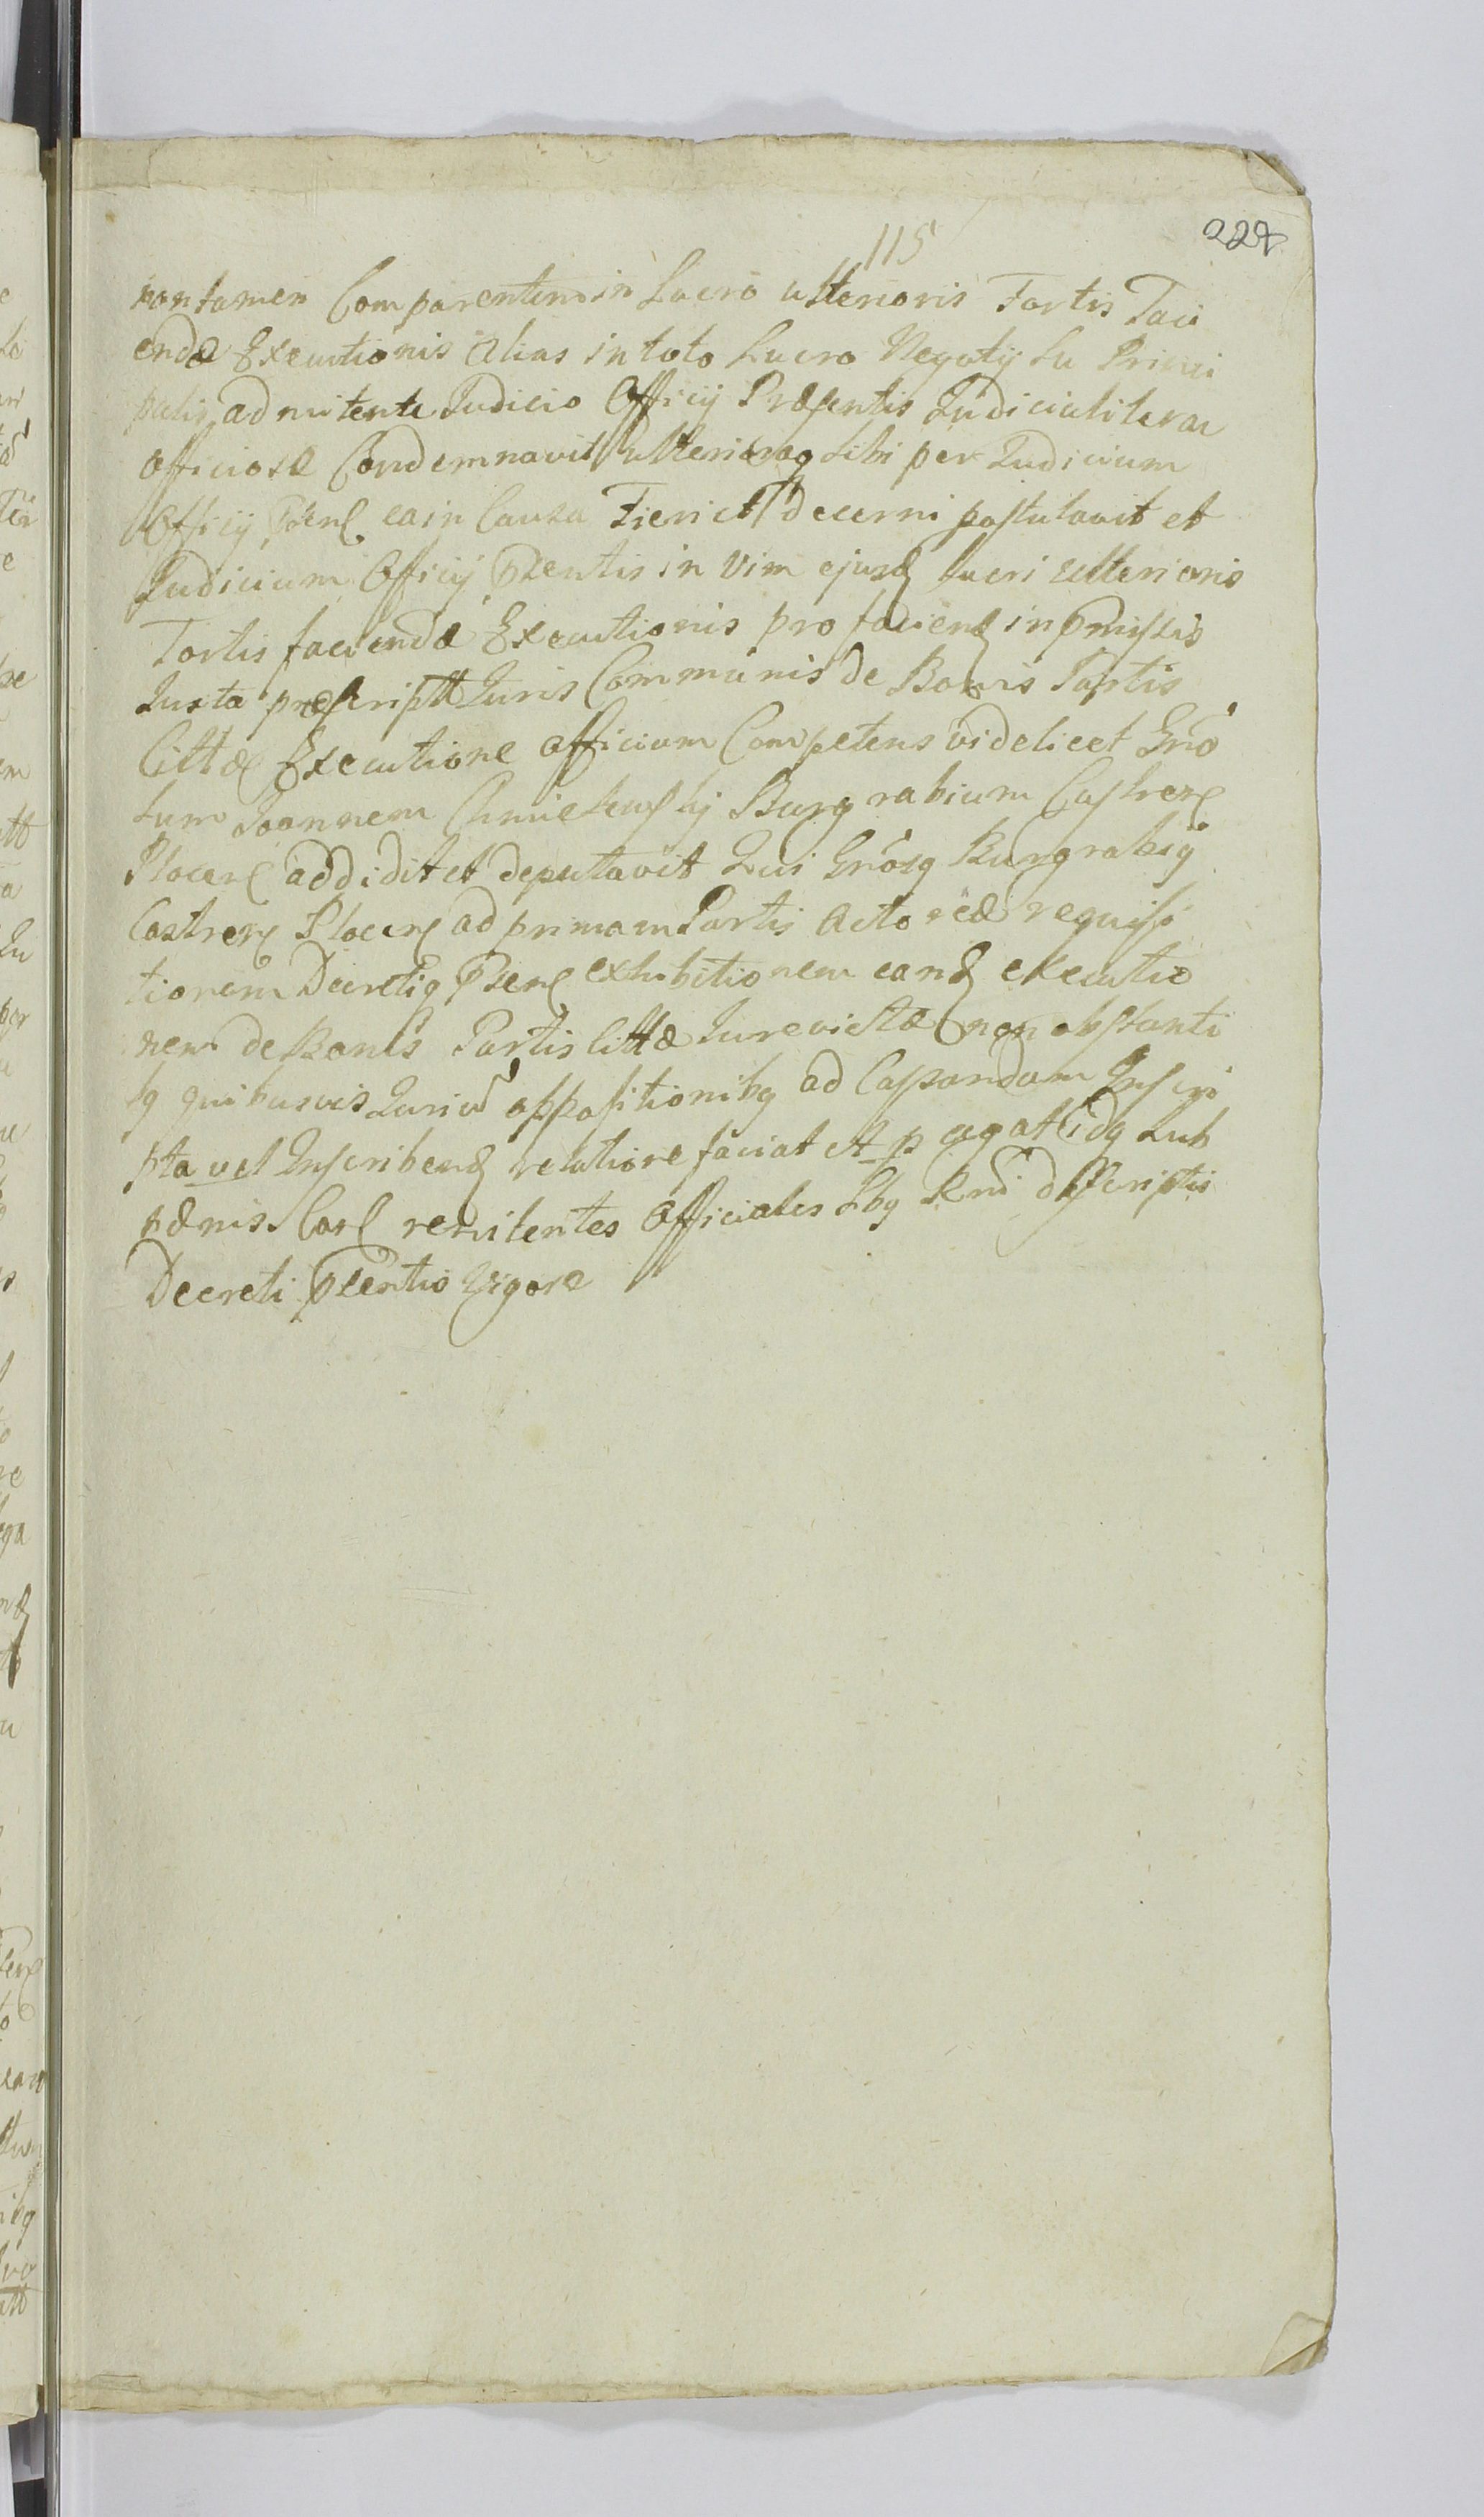 115
228
non tamen Comparentem in Lucro ulterioris Fortis Faci
endæ Executionis alias in toto Lucro Negotij Su Princi
palis admitente Judicio Officij Præsentis Judicialiter ac
officiose Condemnavit ulterioraq sibi per Judicium
Officij Psens ea in Causa Fieri et decerni postulavit et
Judicium Officij psentis in Vim ejusd lucri ulterioris
Fortis faciendæ Executionis pro faciend in pmissis
Juxta præscript Juris Communis de Bonis Partis
Cittæ Executione officium Competens videlicet Gnō
sum Joannem Chmielewskj Burgrabium Castrens
Plocens addidit et deputavit Qui Gnosq Burgrabig
Castrens Plocens ad primam Partis Actoreæ requisi
tionem Decretiq Psens exhibitionem eand executio
nem de Bonis Partis Cittæ Jurevictæ non obstanti
bq quibusvis Juriū oppositionibq ad Cassandam Inscri
pta vel Inscribend relatione faciat et pagat idq Sub
pænis Cos renitentes Officiales Lbq Rni descriptis
Decreti psentis Vigore